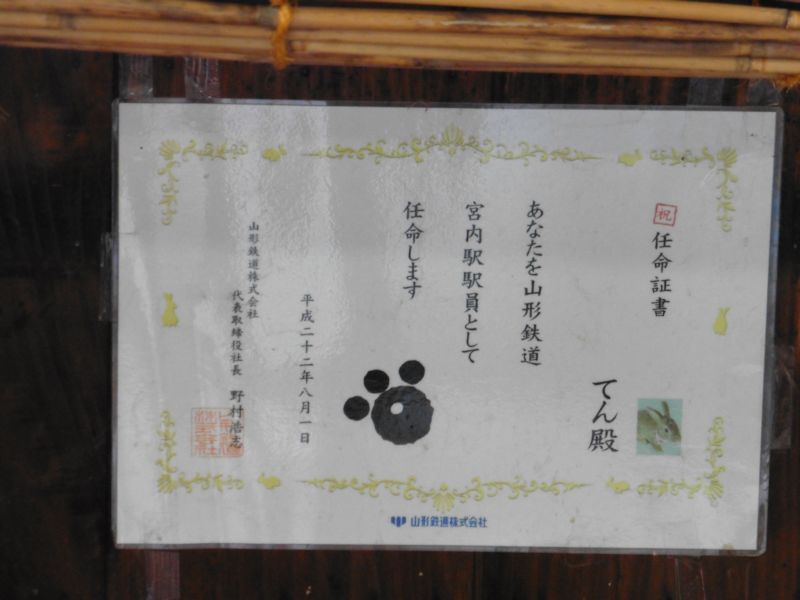 祝 任命証書
てん殿
あなたを山形鉄道
宮内駅駅員として
任命します
平成二十二年八月一日
山形鉄道株式会社
代表取締役社長 野村浩志
山形鉄道株式会社